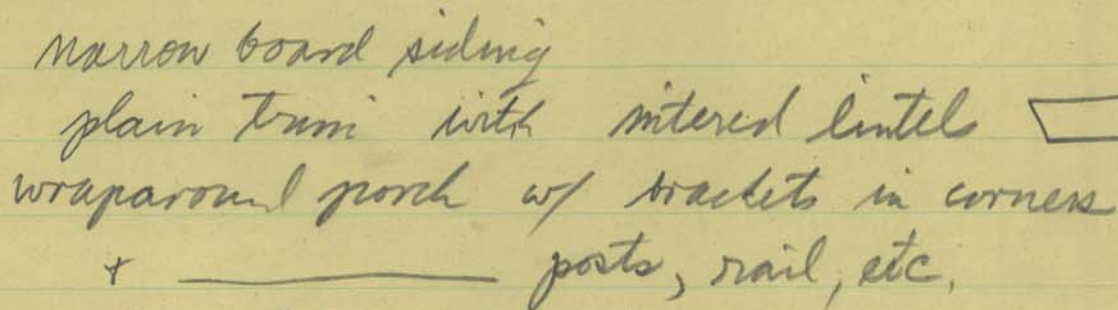 narrow board siding
plain trim with mitered lintels
wraparound porch w/ brackets in corners
+ __________ posts, rail, etc.